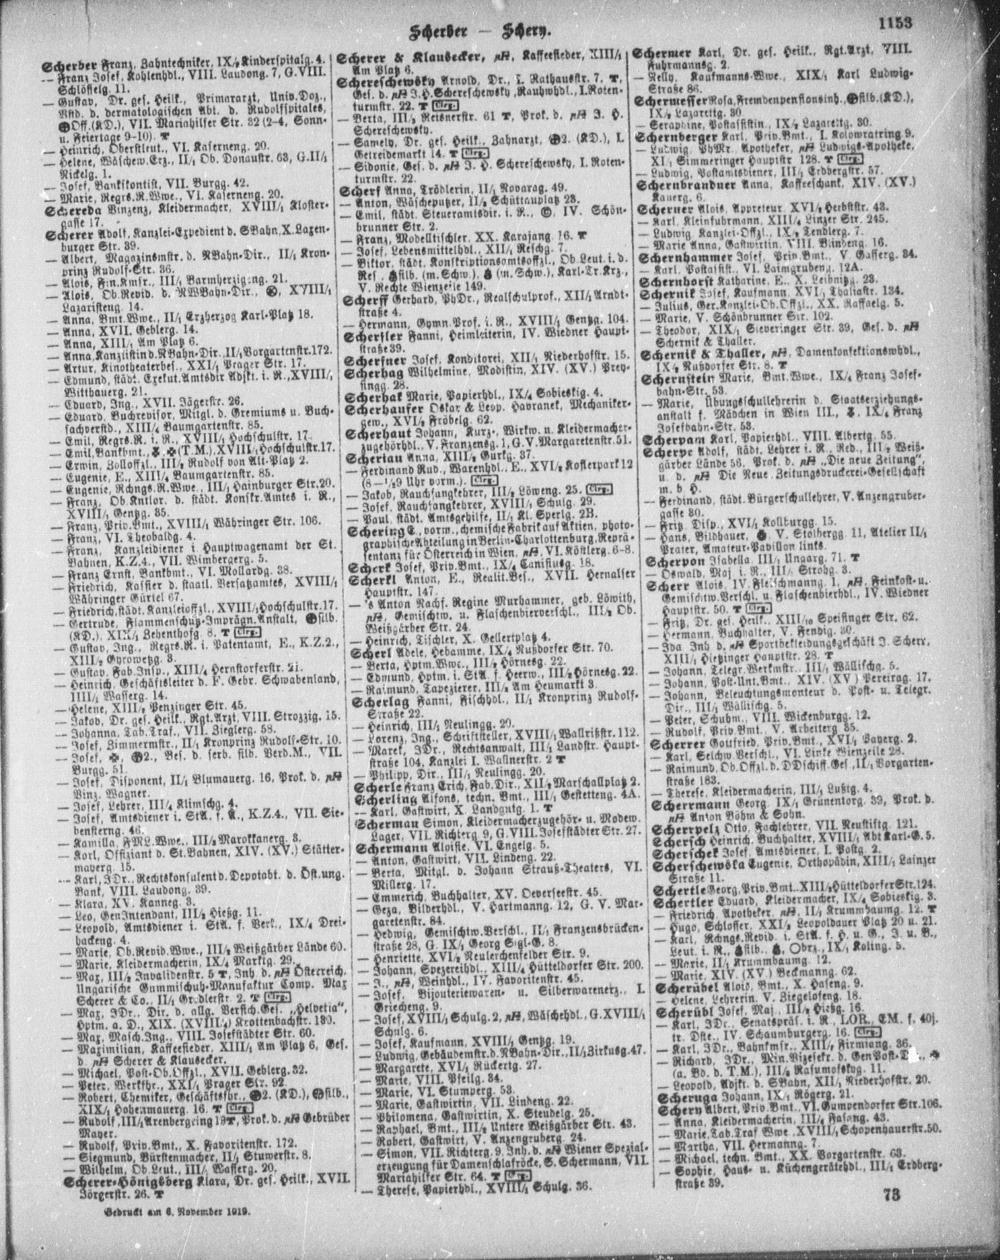 Scherber — Schery.
1153
Scherber Franz, Zahntechniker, IX/2 Kinderspitalg. 4.
— Franz Josef, Kohlenhdl., VIII. Laudong. 7, G. VIII.
Schlösselg. 11.
— Gustav, Dr. ges. Heilk., Primararzt, Univ. Doz.,
Vstd. d. dermatologischen Abt. d. Rudolfspitales,
Off. (KD.), VII. Mariahilfer Str. 32 (2-4, Sonn-
u. Feiertage 9-10).
— Heinrich, Oberstleut., VI. Kaserneng. 20.
— Helene, Wäschew. Erz., II/1 Ob. Donaustr. 63, G. II/1
Nickelg. 1.
— Josef, Bankkontist, VII. Burgg. 42.
— Marie, Regrs. R. Wwe., VI. Kaserneng. 20.
Schereda Vinzenz, Kleidermacher, XVIII/1 Kloster-
gasse 17.
Scherer Adolf, Kanzlei-Expedient d. SBahn, X. Laxen-
burger Str. 39.
— Albert, Magazinsmstr. d. NBahn-Dir., II/1 Kron-
prinz Rudolf-Str. 36.
— Alois, Fin. Kmsr., III/2 Barmherzigeng. 21.
— Alois, Ob. Revid. d. NWBahn-Dir., XVIII/1
Lazaristeng. 14.
— Anna, Bmt. Wwe., II/1 Erzherzog Karl-Platz 18.
— Anna, XVII. Geblerg. 14.
— Anna, XIII/1 Am Platz 6.
— Anna, Kanzlistin d. NBahn-Dir., II/1 Vorgartenstr. 172.
— Artur, Kinotheaterbes., XXI/1 Prager Str. 17.
— Edmund, städt. Exekut. Amtsdir. Adjkt. i. R., XVIII/1
Witthauerg. 21.
— Eduard, Ing., XVII. Jägerstr. 26.
— Eduard, Buchrevisor, Mitgl. d. Gremiums u. Buch-
sachverstd., XIII/4 Baumgartenstr. 85.
— Emil, Regrs. R. i. R., XVIII/3 Hochschulstr. 17.
— Emil, Bankbmt., (T. M.), XVIII/3 Hochschulstr. 17.
— Erwin, Zolloffzl., III/2 Rudolf von Alt-Platz 2.
— Eugenie, E., XIII/4 Baumgartenstr. 85.
— Eugenie, Rchngs. R. Wwe., III/1 Hainburger Str. 20.
— Franz, Ob. Kntlor. d. städt. Konskr. Amtes i. R.,
XVIII/1 Gentzg. 35.
— Franz, Priv. Bmt., XVIII/1 Währinger Str. 106.
— Franz, VI. Theobaldg. 4.
— Franz, Kanzleidiener i. Hauptwagenamt der St.
Bahnen, K. Z. 4., VII. Wimbergerg. 5.
— Franz Ernst, Bankbmt., VI. Mollardg. 38.
— Friedrich, Kassier d. staatl. Versatzamtes, XVIII/1
Währinger Gürtel 67.
— Friedrich, städt. Kanzleioffzl., XVIII/3 Hochschulstr. 17.
— Gertrude, Flammenschutz-Imprägn. Anstalt, silb.
(KD.), XIX/1 Lebenthofg. 8. Clrg.
— Gustav, Ing., Regrs. R. i. Patentamt, E., K. Z. 2.,
XIII/2 Gyrowetzg. 3.
— Gustav, Fab. Insp., XIII/4 Hernstorferstr. 21.
— Heinrich, Geschäftsleiter d. F. Gebr. Schwabenland,
III/4 Wasserg. 14.
— Helene, XIII/2 Penzinger Str. 45.
— Jakob, Dr. ges. Heilk., Rgt. Arzt, VIII. Strozzig. 15.
— Johanna, Tab. Traf., VII. Zieglerg. 58.
— Josef, Zimmermstr., II/1 Kronprinz Rudolf-Str. 10.
— Josef, 2., Bes. d. serb. silb. Verd. M., VII.
Burgg. 51.
— Josef, Disponent, II/1 Blumauerg. 16, Prok. d. rH
Vinz. Wagner.
— Josef, Lehrer, III/4 Klimschg. 4.
— Josef, Amtsdiener i. StA. f. Ä., K. Z. 4., VII. Sie-
bensterng. 46.
— Kamilla, FML. Wwe., III/3 Marokkanerg. 3.
— Karl, Offiziant d. St. Bahnen, XIV. (XV.) Stätter-
mayerg. 15.
— Karl, JDr., Rechtskonsulent d. Depotabt. d. Öst. ung.
Bank, VIII. Laudong. 39.
— Klara, XV. Kanneg. 3.
— Leo, Gen. Intendant, III/2 Hießg. 11.
— Leopold, Amtsdiener i. StA. f. Verk., IX/4 Drei-
hackeng. 4.
— Marie, Ob. Revid. Wwe., III/2 Weißgärber Lände 60.
— Marie, Kleidermacherin, IX/4 Marktg. 29.
— Max, III/3 Invalidenstr. 5, Inh. d. rH Österreich.
Ungarische Gummischuh-Manufaktur Comp. Max
Scherer & Co., II/1 Gredlerstr. 2. Clrg.
— Max, JDr., Dir. d. allg. Versich. Ges. „Helvetia",
Hptm. a. D., XIX. (XVIII/1) Krottenbachstr. 180.
— Max, Masch. Ing., VIII. Josefstädter Str. 60.
— Maximilian, Kaffeesieder, XIII/1 Am Platz 6, Ges.
d. rH Scherer & Klaubecker.
— Michael, Post-Ob. Offzl., XVII. Geblerg. 32.
— Peter, Werkfhr., XXI/1 Prager Str. 92.
— Robert, Chemiker, Geschäftsfhr., 2. (KD.), silb.,
XIX/1 Hohenauerg. 16. Clrg.
— Rudolf, III/3 Arenbergring 19, Prok. d. rH Gebrüder
Mayer.
— Rudolf, Priv. Bmt., X. Favoritenstr. 172.
— Siegmund, Bürstenmacher, II/1 Stuwerstr. 8.
— Wilhelm, Ob. Leut., III/4 Wasserg. 20.
Scherer-Königsberg Klara, Dr. ges. Heilk., XVII.
Jörgerstr. 26.
Gedruckt am 6. November 1919.
Scherer & Klaubecker, rH, Kaffeesieder, XIII/1
Am Platz 6.
Schereschewsky Arnold, Dr., I. Rathausstr. 7,
Ges. d. rH J. H. Schereschewsky, Rauhwhdl., I. Roten-
turmstr. 22. Clrg.
— Berta, III/3 Reisnerstr. 61, Prok. d. rH J. H.
Schereschewsky.
— Samely, Dr. ges. Heilk., Zahnarzt, 2. (KD.), I.
Getreidemarkt 14. Clrg.
— Sidonie, Ges. d. rH J. H. Schereschewsky, I. Roten-
turmstr. 22.
Scherf Anna, Trödlerin, II/1 Novarag. 49.
— Anton, Wäscheputzer, II/2 Schüttauplatz 23.
— Emil, städt. Steueramtsdir. i. R., IV. Schön-
brunner Str. 2.
— Franz, Modelltischler, XX. Karajang. 16.
— Josef, Lebensmittelhdl., XII/1 Reschg. 7.
— Viktor, städt. Konskriptionsamtsoffzl., Ob. Leut. i. d.
Res., silb. (m. Schw.), (m. Schw.), Karl-Tr. Krz.,
V. Rechte Wienzeile 149.
Scherff Gerhard, PhDr., Realschulprof., XII/1 Arndt-
straße 4.
— Hermann, Gymn. Prof. i. R., XVIII/1 Gentzg. 104.
Scherfler Fanni, Heimleiterin, IV. Wiedner Haupt-
straße 39.
Scherfner Josef, Konditorei, XII/1 Niederhofstr. 15.
Scherhag Wilhelmine, Modistin, XIV. (XV.) Prey-
singg. 28.
Scherhak Marie, Papierhdl., IX/4 Sobieskig. 4.
Scherhaufer Oskar & Leop. Havranek, Mechaniker-
gew., XVI/1 Fröbelg. 62.
Scherhant Johann, Kurz-, Wirkw. u. Kleidermacher-
zugehörhdl., V. Franzensg. 1, G. V. Margaretenstr. 51.
Scherian Anna, XIII/2 Gurkg. 37.
— Ferdinand Rud., Warenhdl., E., XVI/2 Koflerpark 12
(8 — 1/2 9 Uhr vorm.). Clrg.
— Jakob, Rauchfangkehrer, III/2 Löweng. 25. Clrg.
— Josef, Rauchfangkehrer, XVIII/1 Schulg. 29.
— Paul, städt. Amtsgehilfe, II/1 Kl. Sperlg. 2B.
Schering E., vorm., chemische Fabrik auf Aktien, photo-
graphische Abteilung in Berlin-Charlottenburg, Reprä-
sentanz für Österreich in Wien, rH, VI. Köstlerg. 6-8.
Scherk Josef, Priv. Bmt., IX/4 Canisiusg. 18.
Scherkl Anton, E., Realit. Bes., XVII. Hernalser
Hauptstr. 147.
— 's Anton Nachf. Regine Murhammer, geb. Löwith,
rH, Gemischtw. u. Flaschenbierverschl., III/2 Ob.
Weißgärber Str. 24.
— Heinrich, Tischler, X. Gellertplatz 4.
Scherl Adele, Hebamme, IX/4 Nußdorfer Str. 70.
— Berta, Hptm. Wwe., III/2 Hörnesg. 22.
— Edmund, Hptm. i. StA. f. Heerw., III/2 Hörnesg. 22.
— Raimund, Tapezierer, III/3 Am Heumarkt 3.
Scherlag Fanni, Fischhdl., II/1 Kronprinz Rudolf-
Straße 22.
— Heinrich, III/1 Neulingg. 20.
— Lorenz, Ing., Schriftsteller, XVIII/1 Wallrißstr. 112.
— Marek, JDr., Rechtsanwalt, III/1 Landstr. Haupt-
straße 104, Kanzlei I. Wallnerstr. 2
— Philipp, Dir., III/1 Neulingg. 20.
Scherle Franz Erich, Fab. Dir., XII/2 Marschallplatz 2.
Scherling Alfons, techn. Bmt., III/1 Gestetteng. 4A.
— Karl, Gastwirt, X. Landgutg. 1.
Scherman Simon, Kleidermacherzugehör- u. Modew.
Lager, VII. Richterg. 9, G. VIII. Josefstädter Str. 27.
Schermann Aloisie, VI. Engelg. 5.
— Anton, Gastwirt, VII. Lindeng. 22.
— Berta, Mitgl. d. Johann Strauß-Theaters, VI.
Millerg. 17.
— Emmerich, Buchhalter, XV. Oeverseestr. 45.
— Geza, Bilderhdl., V. Hartmanng. 12, G. V. Mar-
garetenstr. 84.
— Hedwig, Gemischtw. Verschl., II/1 Franzensbrücken-
straße 28, G. IX/1 Georg Sigl-G. 8.
— Henriette, XVI/1 Neulerchenfelder Str. 9.
— Johann, Spezereihdl., XIII/4 Hütteldorfer Str. 200.
— J., rH, Weinhdl., IV. Favoritenstr. 45.
— Josef, Bijouteriewaren- u. Silberwarenerz., I.
Griecheng. 9.
— Josef, XVIII/1 Schulg. 2, rH, Wäschehdl., G. XVIII/1
Schulg. 6.
— Josef, Kaufmann, XVIII/1 Gentzg. 19.
— Ludwig, Gebäudemstr. d. NBahn-Dir., II/1 Zirkusg. 47.
— Margarete, XVI/2 Rückertg. 27.
— Marie, VIII. Pfeilg. 34.
— Marie, VI. Stumperg. 53.
— Marie, Gastwirtin, VII. Lindeng. 22.
— Philomena, Gastwirtin, X. Steudelg. 25.
— Raphael, Bmt., III/2 Untere Weißgärber Str. 43.
— Robert, Gastwirt, V. Anzengruberg. 24.
— Simon, VII. Richterg. 9, Inh. d. rH Wiener Spezial-
erzeugung für Damenschlafröcke, S. Schermann, VII.
Mariahilfer Str. 64. Clrg.
— Therese, Papierhdl., XVIII/1 Schulg. 36.
Schermer Karl, Dr. ges. Heilk., Rgt. Arzt, VIII.
Fuhrmannsg. 2.
— Nelly, Kaufmanns-Wwe., XIX/1 Karl Ludwig-
Straße 86.
Schermesser Rosa, Fremdenpensionsinh., silb. (KD.),
IX/2 Lazarettg. 30
— Seraphine, Postassistin., IX/2 Lazarettg. 30.
Schernberger Karl, Priv. Bmt., I. Kolowratring 9.
— Ludwig, PhMr., Apotheker, rH Ludwigs-Apotheke,
XI/1 Simmeringer Hauptstr. 128. Clrg.
— Ludwig, Postamtsdiener, III/1 Erdbergstr. 57.
Schernbrandner Anna, Kaffeeschank, XIV. (XV.)
Kauerg. 6.
Scherner Alois, Appreteur, XVI/2 Herbststr. 43.
— Karl, Kleinfuhrmann, XIII/4 Linzer Str. 245.
— Ludwig, Kanzlei-Offzl., IX/3 Tendlerg. 7.
— Marie Anna, Gastwirtin, VIII. Bindeng. 16.
Schernhammer Josef, Priv. Bmt., V. Gasserg. 34.
— Karl, Postassist., VI. Laimgrubeng. 12A.
Schernhorst Katharine, E., X. Leibnitzg. 23.
Schernik Josef, Kaufmann, XVI/1 Thaliastr. 134.
— Julius, Ger. Kanzlei-Ob. Offzl., XX. Raffaelg. 5.
— Marie, V. Schönbrunner Str. 102.
— Theodor, XIX/1 Sieveringer Str. 39, Ges. d. rH
Schernik & Thaller.
Schernik & Thaller, rH, Damenkonfektionswhdl.,
IX/4 Nußdorfer Str. 8.
Schernstein Marie, Bmt. Wwe., IX/4 Franz Josef-
bahn-Str. 53.
— Marie, Übungsschullehrerin d. Staatserziehungs-
anstalt f. Mädchen in Wien III., IX/4 Franz
Josefbahn-Str. 53.
Scherpam Karl, Papierhdl., VIII. Albertg. 55.
Scherpe Adolf, städt. Lehrer i. R., Red., III/2 Weiß-
gärber Lände 56, Prok. d. rH „Die neue Zeitung",
u. d. rH Die Neue Zeitungsdruckerei-Gesellschaft
m. b. H.
— Ferdinand, städt. Bürgerschullehrer, V. Anzengruber-
gasse 30.
— Fritz, Disp., XVI/1 Kollburgg. 15.
— Hans, Bildhauer, V. Stolbergg. 11, Atelier II/1
Prater, Amateur-Pavillon links.
Scherpon Isabella, III/1 Ungarg. 71.
— Oswald, Maj. i. R., III/1 Strohg. 3.
Scherr Alois, IV. Fleischmanng. 1, rH, Feinkost- u.
Gemischtw. Verschl. u. Flaschenbierhdl., IV. Wiedner
Hauptstr. 50. Clrg.
— Fritz, Dr. ges. Heilk., XIII/10 Speisinger Str. 62.
— Hermann, Buchhalter, V. Fendig. 30.
— Ida, Inh. d. rH Sportbekleidungsgeschäft J. Scherr,
XIII/1 Hietzinger Hauptstr. 28.
— Johann, Telegr. Werkmstr., III/1 Wällischg. 5.
— Johann, Post-Unt. Bmt., XIV. (XV.) Pereirag. 17.
— Johann, Beleuchtungsmonteur d. Post- u. Telegr.
Dir., III/1 Wällischg. 5.
— Peter, Schuhm., VIII. Wickenburgg. 12.
— Rudolf, Priv. Bmt., V. Arbeiterg. 35.
Scherrer Gottfried, Priv. Bmt., XVI/1 Payerg. 2.
— Karl, Selchw. Verschl., VI. Linke Wienzeile 28.
— Raimund, Ob. Offzl. d. DDschiff. Ges., II/1 Vorgarten-
straße 183.
— Therese, Kleidermacherin, III/2 Lustg. 4.
Scherrmann Georg, IX/2 Grünentorg. 39, Prok. d.
rH Anton Böhm & Sohn.
Scherrpelz Otto, Fachlehrer, VII. Neustiftg. 121.
Schersch Heinrich, Buchhalter, XVIII/1 Abt Karl-G. 5.
Scherschek Josef, Amtsdiener, I. Postg. 2.
Scherschewska Eugenie, Orthopädin, XIII/2 Lainzer
Straße 11.
Schertle Georg, Priv. Bmt., XIII/4 Hütteldorfer Str. 124.
Schertler Eduard, Kleidermacher, IX/4 Sobieskig. 3.
— Friedrich, Apotheker, rH, II/1 Krummbaumg. 12.
— Hugo, Schlosser, XXI/1 Leopoldauer Platz 20 u. 21.
— Karl, Rchngs. Revid. i. StA. f. H. u. G., J. u. B.,
Leut. i. R., silb., Obrz., IX/1 Koling. 5.
— Marie, II/1 Krummbaumg. 12.
— Marie, XIV. (XV.) Beckmanng. 62.
Scherübel Alois, Bmt., X. Haseng. 9.
— Helene, Lehrerin, V. Ziegelofeng. 18.
Scherübl Josef, Maj., III/2 Hießg. 16.
— Karl, JDr., Senatspräs. i. R., LOR., EM. f. 40j.
tr. Dste., IV. Schaumburgerg. 16. Clrg.
— Karl, JDr., Bahnkmsr., XIII/2 Firmiang. 36.
— Richard, JDr., Min. Vizesekr. d. Gen. Post-Dir.,
(a. Bd. d. T. M.), III/2 Rasumofskyg. 11.
— Leopold, Adjkt. d. SBahn, XII/1 Niederhofstr. 20.
Scheruga Johann, IX/1 Rögerg. 21.
Schery Albert, Priv. Bmt., VI. Gumpendorfer Str. 106.
— Anna, Kleidermacherin, III/4 Fasang. 43.
— Marie, Tab. Traf. Wwe., XVIII/1 Schopenhauerstr. 50.
— Martha, VII. Hermanng. 7.
— Michael, techn. Bmt., XX. Vorgartenstr. 63.
— Sophie, Haus- u. Küchengerätehdl., III/1 Erdberg-
straße 39.
73